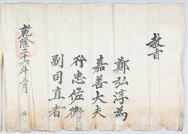 教旨
鄭弘淳為
嘉善大夫
行忠佐衛
副司直者
乾隆二十六年三月